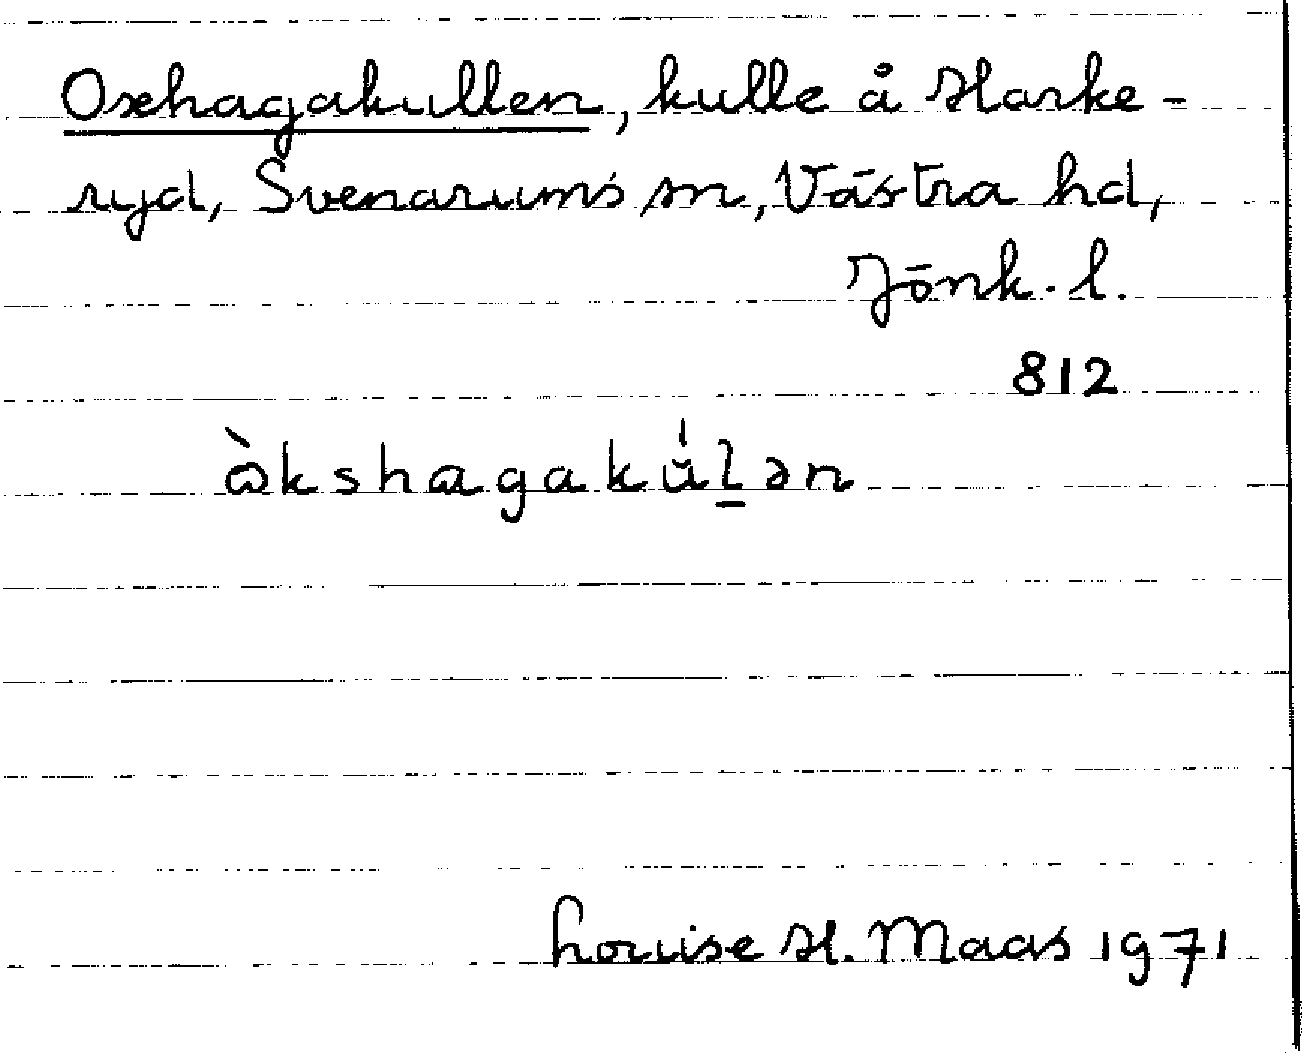 Oxhagakullen, kulle å Harke-
ryd, Svenarums sn, Västra hd,
Jönk. l.
812
ɷ̀kshagakǔ́l̲ən
Louise H. Maas 1971